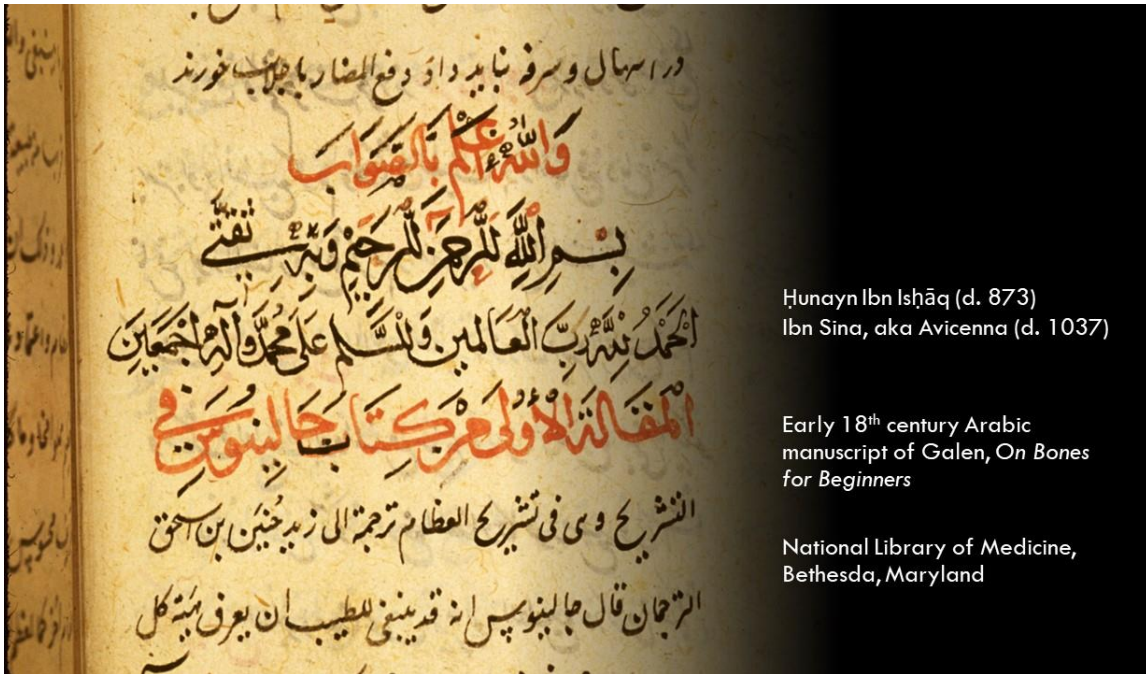 در اسهال و سرفه نباید داد دفع المضار با جلاب خورند
والله اعلم بالصواب
بسم الله الرحمن الرحيم وبه ثقتي
الحمد لله رب العالمين والسلم على محمد وآله اجمعين
المقالة الأولى من كتاب جالينوس في
التشريح وهى فى تشريح العظام ترجمة ابى زيد حنين بن اسحق
الترجمان قال جالينوس انه قد ينبغى للطبيب ان يعرف هيئة كل
Ḥunayn Ibn Isḥāq (d. 873)
Ibn Sina, aka Avicenna (d. 1037)
Early 18th century Arabic
manuscript of Galen, On Bones
for Beginners
National Library of Medicine,
Bethesda, Maryland